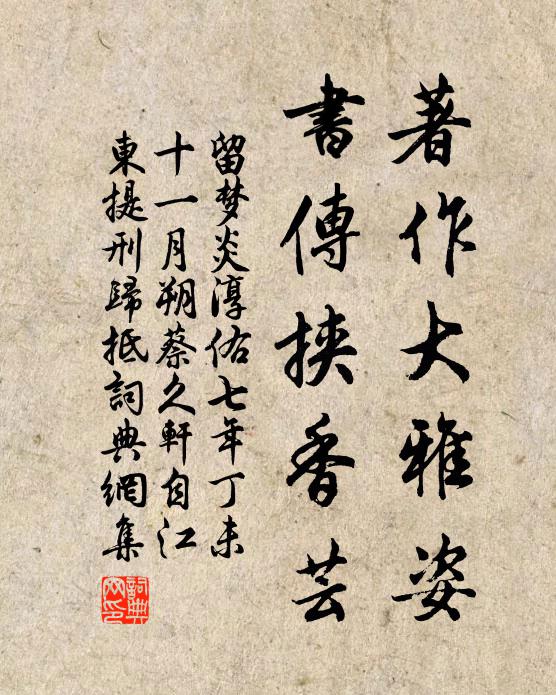 著作大雅姿
書傳挾香芸
留梦炎淳佑七年丁未
十一月朔蔡久軒自江
東提刑歸抵詞典網集
詞典
网印